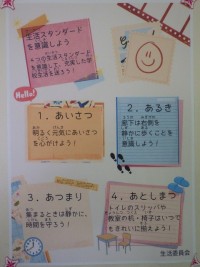 生活スタンダード
を意識しよう
4つの生活スタンダード
を意識して、充実した学
校生活を送ろう！
Hello!
1．あいさつ
明るく元気にあいさつ
を心がけよう！
2．あるき
廊下は右側を
静かに歩くことを
意識しよう！
3．あつまり
集まるときは静かに、
時間を守ろう！
4．あとしまつ
トイレのスリッパや
教室の机・椅子はいつで
もきれいに揃えよう！
生活委員会